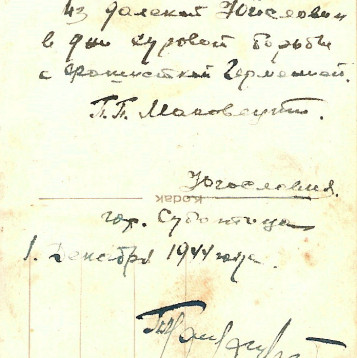 из далекой Югославии
в дни суровой борьбы
с фашисткой Германией.
П.П. Маковецкий.
Югославия.
Kodak
гор. Суботица
1. Декабря 1944 года.